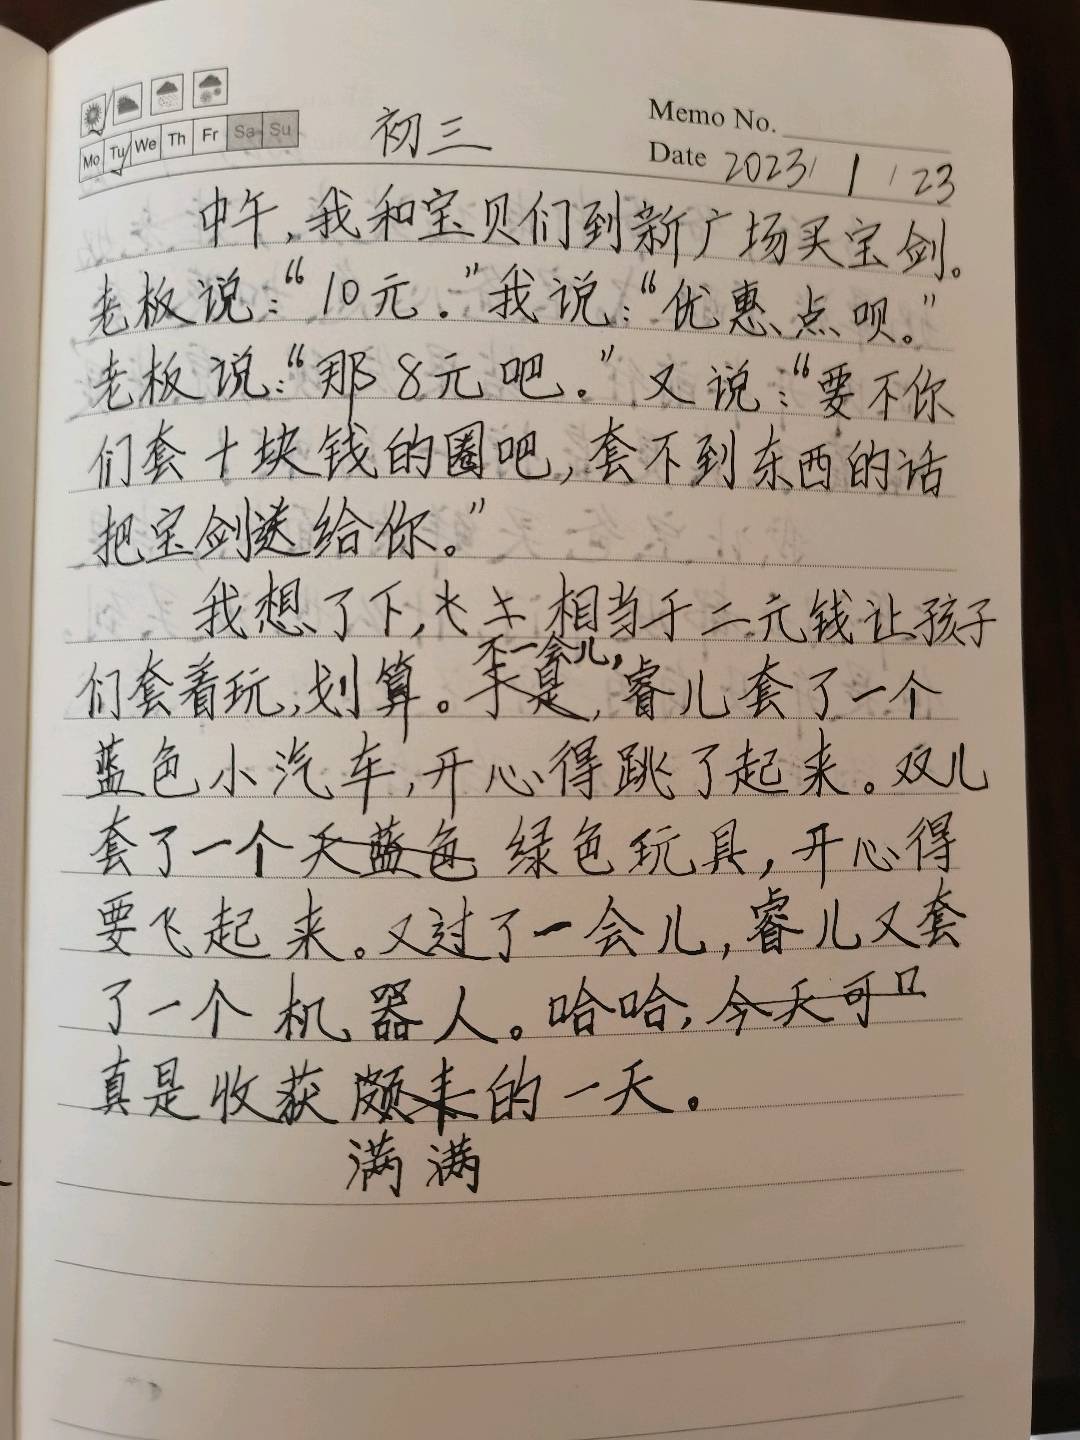 Mo Tu We Th Fr Sa Su
初三
Memo No.
Date 2023/1/23
中午,我和宝贝们到新广场买宝剑。
老板说:“10元.”我说:“优惠点呗。”
老板说:“那8元吧。”又说:“要不你
们套十块钱的圈吧,套不到东西的话
把宝剑送给你。”
我想了下,相当于二元钱让孩子
不一会儿,
们套着玩,划算。于是,睿儿套了一个
蓝色小汽车,开心得跳了起来。双儿
套了一个天蓝色绿色玩具,开心得
要飞起来。又过了一会儿,睿儿又套
了一个机器人。哈哈,今天可
真是收获颇丰的一天。
满满